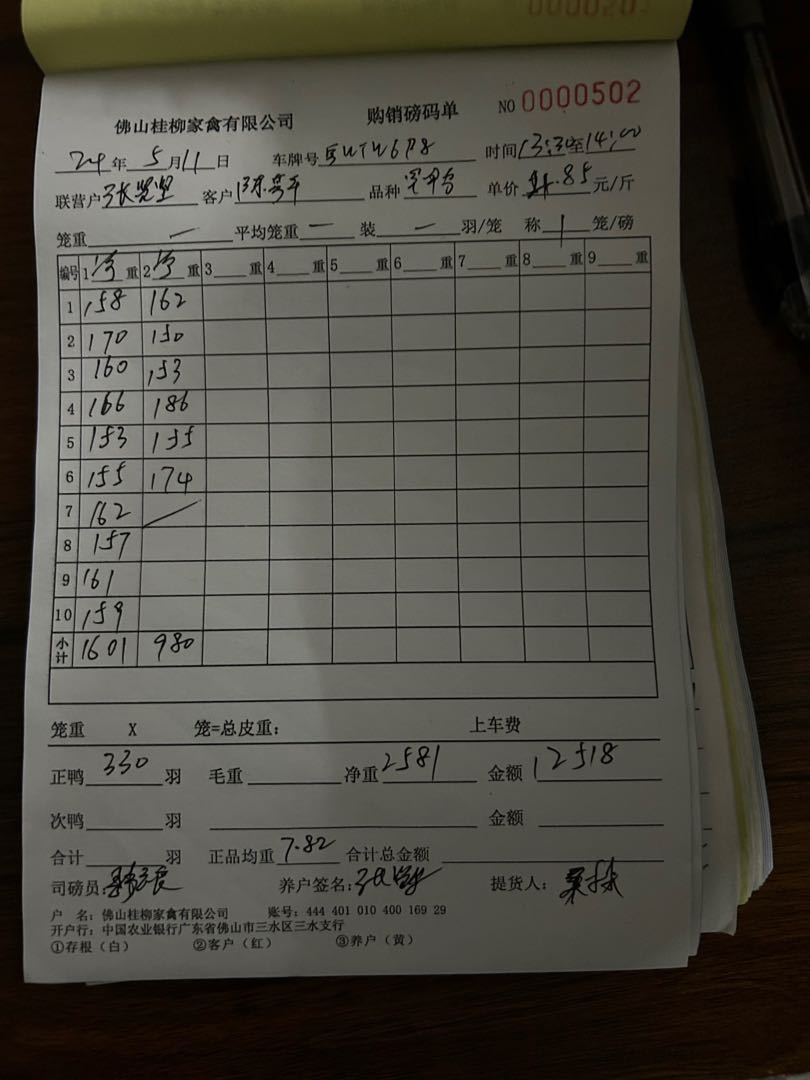 佛山桂柳家禽有限公司 购销磅码单 NO 0000502
24年5月11日 车牌号 时间13:30至14:00
联营户 客户 品种 单价 4.85 元/斤
笼重 — 平均笼重 — 装 — 羽/笼 称 1 笼/磅
编号 1 重 2 重 3 重 4 重 5 重 6 重 7 重 8 重 9 重
1 158 162
2 170 150
3 160 153
4 166 186
5 153 155
6 155 174
7 162
8 157
9 161
10 159
小计 1601 980
笼重 X 笼=总皮重: 上车费
正鸭 330 羽 毛重 净重 2581 金额 12518
次鸭 羽 金额
合计 羽 正品均重 7.82 合计总金额
司磅员: 养户签名: 提货人:
户 名: 佛山桂柳家禽有限公司 账号: 444 401 010 400 169 29
开户行: 中国农业银行广东省佛山市三水区三水支行
①存根(白) ②客户(红) ③养户(黄)